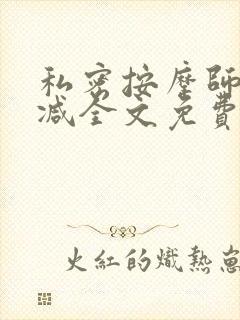 私密按摩師
减全文免費
火紅的熾熱